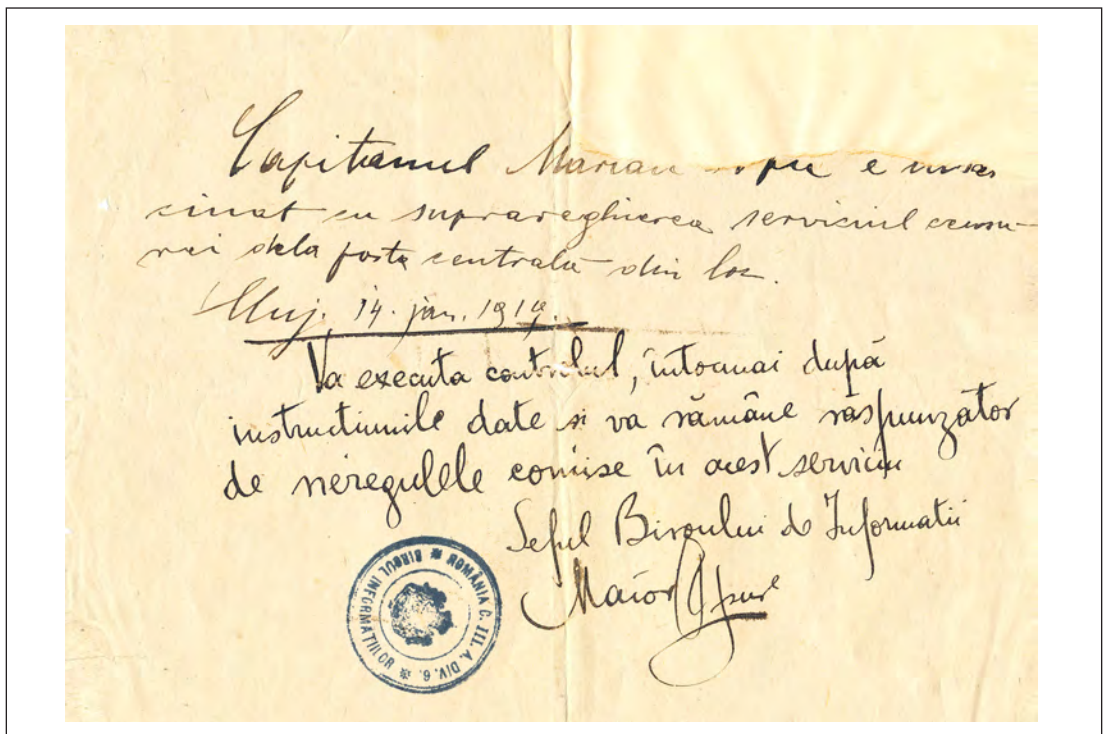 Capitanul Marian e însăr
cinat cu supraveghierea serviciul cenzu-
rei dela posta centrală din loc.
Cluj. 14. jan. 1919.
Va executa controlul, întocmai după
instructiunile date si va rămâne răspunzător
de neregulele comise în acest serviciu
Seful Biroului de Informatii
Maior
ROMÂNIA C. III. A. DIV. 6. * BIROUL INFORMAȚIILOR *